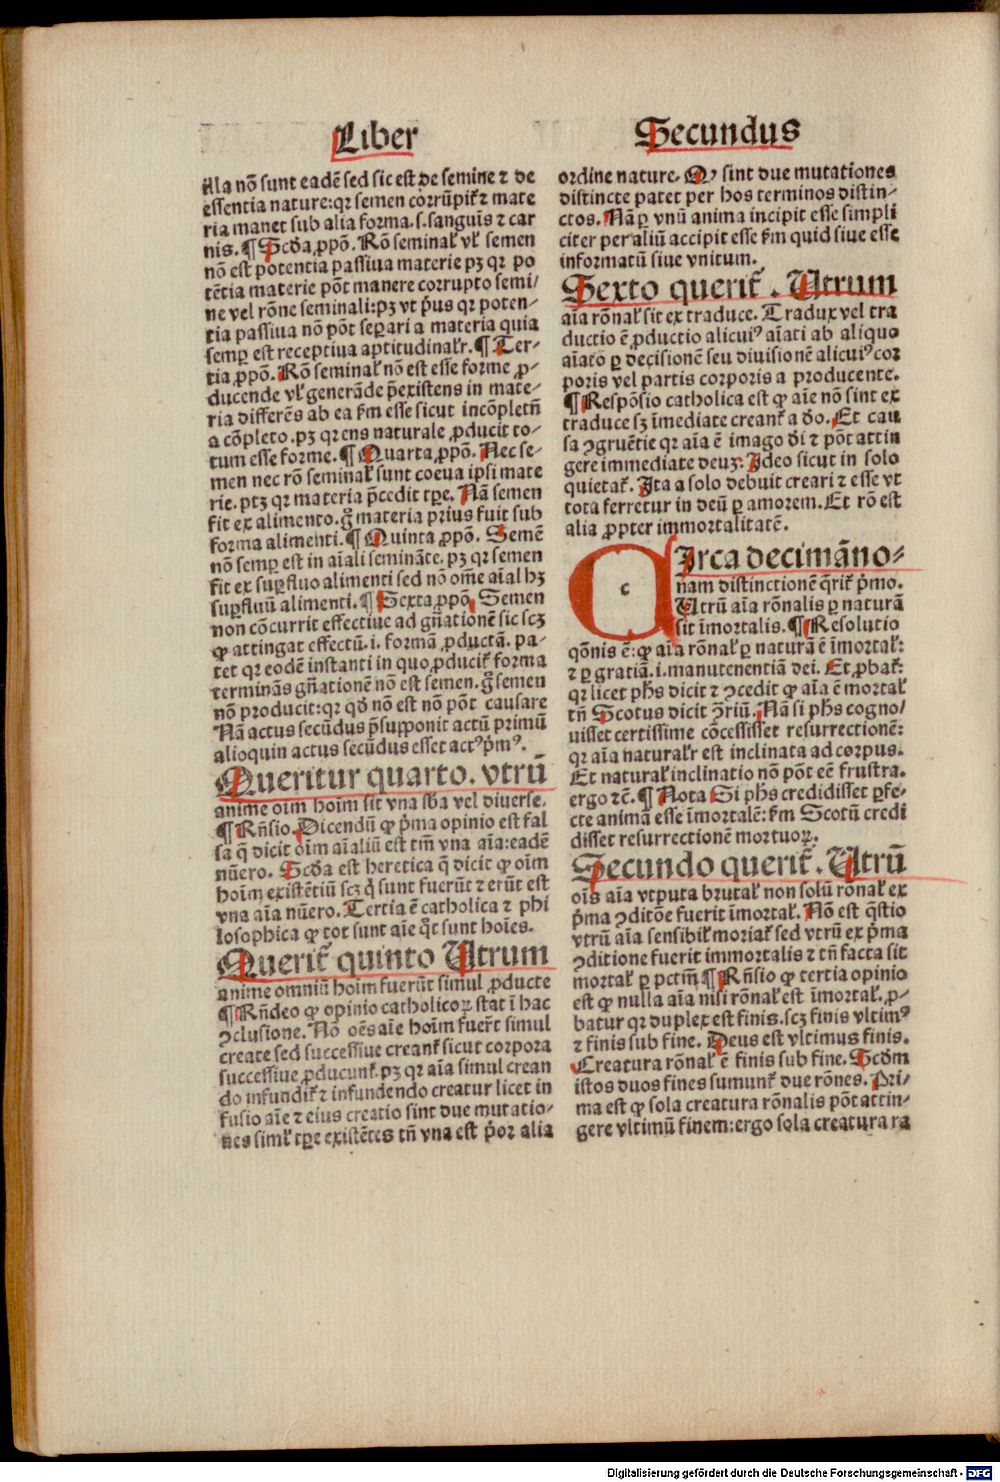 Liber
Secundus
illa nõ sunt eadẽ sed sic est de semine ⁊ de
essentia nature: qꝛ semen corrũpit̃ ⁊ mate
ria manet sub alia forma .s. sanguis ⁊ car
nis. ¶ Scd̃a ꝓpõ. Rõ seminal̃ vl̃ semen
nõ est potentia passiua materie pꝫ qꝛ po
tẽtia materie põt manere corrupto semi/
ne vel rõne seminali: pꝫ vt p̃us qꝛ poten-
tia passiua nõ põt separi a materia quia
semꝑ est receptiua aptitudinal̃r. ¶ Ter-
tia ꝓpõ. Rõ seminal̃ nõ est esse forme ꝓ-
ducende vl̃ generãde p̃existens in mate-
ria differẽs ab ea fm̃ esse sicut incõpletũ
a cõpleto. pꝫ qꝛ ens naturale ꝓducit to-
tum esse forme. ¶ Quarta ꝓpõ. Nec se-
men nec rõ seminal̃ sunt coeua ipsi mate
rie. ptꝫ qꝛ materia p̃cedit tꝑe. Nã semen
fit ex alimento. g̃ materia prius fuit sub
forma alimenti. ¶ Quinta ꝓpõ. Semẽ
nõ semꝑ est in aĩali semināte. pꝫ qꝛ semen
fit ex suꝑfluo alimenti sed nõ om̃e aĩal hꝫ
suꝑfluũ alimenti. ¶ Sexta ꝓpõ Semen
non cõcurrit effectiue ad gñationẽ sic scꝫ
ꝙ attingat effectũ .i. formã ꝓductã. pa-
tet qꝛ eodẽ instanti in quo ꝓducit̃ forma
terminãs gñationẽ nõ est semen. g̃ semen
nõ producit: qꝛ qd̃ nõ est nõ põt causare
Nã actus secũdus p̃supponit actũ primũ
alioquin actus secũdus esset actꝰ p̃mꝰ.
Queritur quarto. vtrũ
anime oĩm hoĩm sit vna sb̃a vel diuerse.
¶ Rñsio. Dicendũ ꝙ p̃ma opinio est fal
sa q̃ dicit oĩm aĩaliũ est tm̃ vna aĩa: eadẽ
nũero. Scd̃a est heretica q̃ dicit ꝙ oĩm
hoĩm existẽtiũ scꝫ q̃ sunt fuerũt ⁊ erũt est
vna aĩa nũero. Tertia ẽ catholica ⁊ phi
losophica ꝙ tot sunt aĩe q̃t sunt hoĩes.
Querit̃ quinto Utrum
anime omniũ hoĩm fuerũt simul ꝓducte
¶ Rñdeo ꝙ opinio catholicoꝝ stat ĩ hac
ↄclusione. Nõ oẽs aĩe hoĩm fuer̃t simul
create sed successiue creant̃ sicut corpora
successiue ꝓducunt̃. pꝫ qꝛ aĩa simul crean
do infundit̃ ⁊ infundendo creatur licet in
fusio aĩe ⁊ eius creatio sint due mutatio-
nes simul̃ tꝑe existẽtes tñ vna est p̃or alia
ordine nature. Q̃ sint due mutationes
distincte patet per hos terminos distin-
ctos. Nã ꝑ vnũ anima incipit esse simpli
citer per aliũ accipit esse fm̃ quid siue esse
informatũ siue vnitum.
Sexto querit̃. Utrum
aĩa rõnal̃ sit ex traduce. Tradux vel tra
ductio ẽ ꝓductio alicuiꝰ aĩati ab aliquo
aĩato ꝑ decisionẽ seu diuisionẽ alicuiꝰ cor
poris vel partis corporis a producente.
¶ Respõsio catholica est ꝙ aĩe nõ sint ex
traduce sꝫ ĩmediate creant̃ a d̃o. Et cau
sa ↄgruẽtie qꝛ aĩa ẽ imago d̃i ⁊ põt attin
gere immediate deuꝫ. Ideo sicut in solo
quietat̃. Ita a solo debuit creari ⁊ esse vt
tota ferretur in deũ ꝑ amorem. Et rõ est
alia ꝓpter immortalitatẽ.
c
Irca decimãno-
nam distinctionẽ q̃rit̃ p̃mo.
Utrũ aĩa rõnalis ꝑ naturã
sit ĩmortalis. ¶ Resolutio
qõnis ẽ: ꝙ aĩa rõnal̃ ꝑ naturã ẽ ĩmortal̃:
⁊ ꝑ gratiã .i. manutenentiã dei. Et ꝓbat̃:
qꝛ licet ph̃s dicit ⁊ ↄcedit ꝙ aĩa ẽ mortal̃
tñ Scotus dicit ↄ̃riũ. Nã si ph̃s cogno/
uisset certissime cõcessisset resurrectionẽ:
qꝛ aĩa natural̃r est inclinata ad corpus.
Et natural̃ inclinatio nõ põt eẽ frustra.
ergo ⁊c̃. ¶ Nota Si ph̃s credidisset ꝑfe-
cte animã esse ĩmortalẽ: fm̃ Scotũ credi
disset resurrectionẽ mortuoꝝ.
Secundo querit̃. Utrũ
oĩs aĩa vtputa brutal̃ non solũ rõnal̃ ex
p̃ma ↄditõe fuerit ĩmortal̃. Nõ est q̃stio
vtrũ aĩa sensibil̃ moriat̃ sed vtrũ ex p̃ma
ↄditione fuerit immortalis ⁊ tñ facta sit
mortal̃ ꝑ pctm̃ ¶ Rñsio ꝙ tertia opinio
est ꝙ nulla aĩa nisi rõnal̃ est ĩmortal̃. ꝓ-
batur qꝛ duplex est finis. scꝫ finis vltimꝰ
⁊ finis sub fine. Deus est vltimus finis.
Creatura rõnal̃ ẽ finis sub fine. Scd̃m
istos duos fines sumunt̃ due rõnes. Pri/
ma est ꝙ sola creatura rõnalis põt attin-
gere vltimũ finem: ergo sola creatura ra
Digitalisierung gefördert durch die Deutsche Forschungsgemeinschaft - DFG